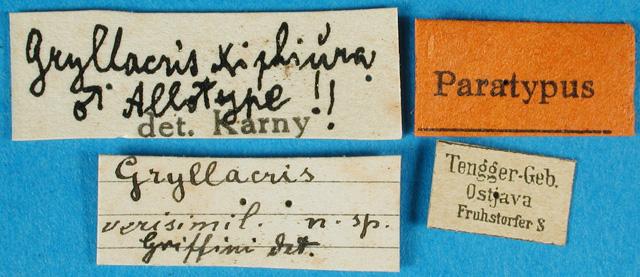 Gryllacris xiphiura
♂ Allotype !!
det. Karny
Paratypus
Gryllacris
verisimil. n. sp.
Griffini det.
Tengger-Geb.
Ostjava
Fruhstorfer S